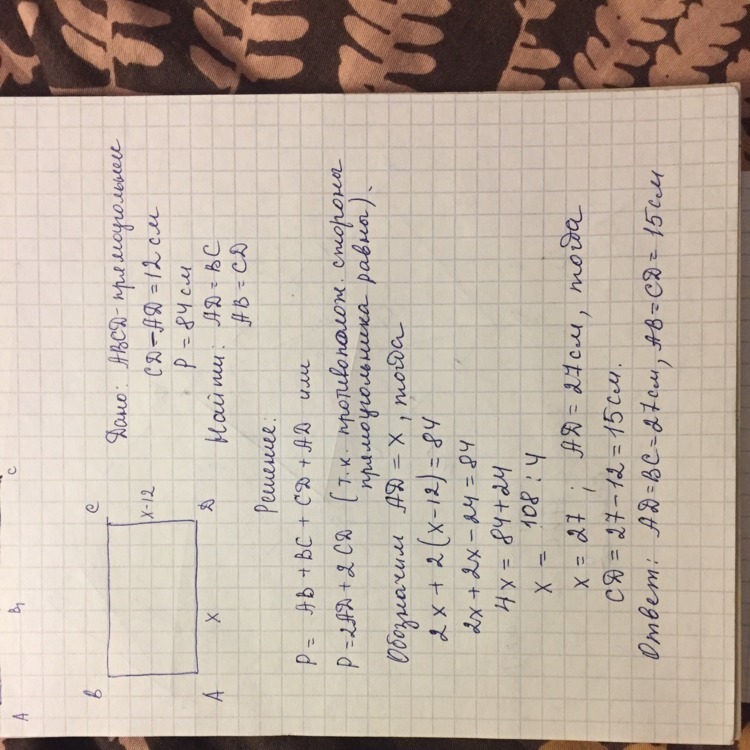 A B₁ C
B C
x-12
A x D
Дано: ABCD-прямоугольник
CD-AD=12 см
P=84 см
Найти: AD=BC
AB=CD
Решение:
P= AB+BC+CD+AD или
P=2AD+2CD (т.к. противополож. стороны
прямоугольника равны).
Обозначим AD=x, тогда
2x+2(x-12)=84
2x+2x-24=84
4x=84+24
x= 108:4
x=27; AD=27см, тогда
CD=27-12=15см.
Ответ: AD=BC=27см, AB=CD=15см